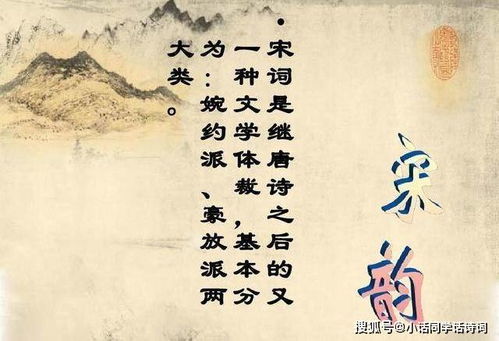 ·宋词是继唐诗之后的又
一种文学体裁，基本分
为：婉约派、豪放派两
大类。
宋韵
搜狐号@小话同学话诗词